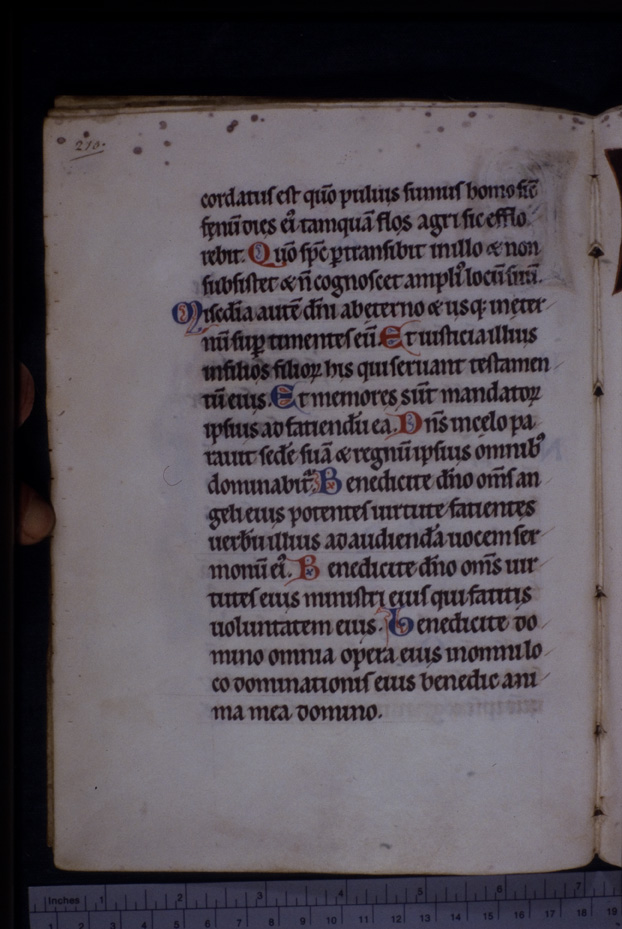 210.
cordatus est qũo puluis sumus homo sic̃
fenũ dies ei᾽ tamquã flos agri sic efflo
rebit. Qũo sp̃c ptransibit in illo & non
subsistet & ñ cognoscet ampli᾽ locũ suũ.
Misc̃dia autẽ dñi ab eterno & usq; in eter
nũ sup timentes eũ. Et iusticia illius
in filios filioꝝ his qui seruant testamen
tũ eius. Et memores sũt mandatoꝝ
ipsius ad faciendũ ea. Dñs in celo pa
rauit sedẽ suã & regnũ ipsius omnib᾽
dominabit̃. Benedicite dño oms̃ an
geli eius potentes uirtute facientes
uerbũ illius ad audiendã uocem ser
monũ ei᾽. Benedicite dño oms̃ uir
tutes eius ministri eius qui facitis
uoluntatem eius. Benedicite do
mino omnia opera eius in omni lo
co dominationis eius benedic ani
ma mea domino.
Inches 1 2 3 4 5 6 7
1 2 3 4 5 6 7 8 9 10 11 12 13 14 15 16 17 18 19